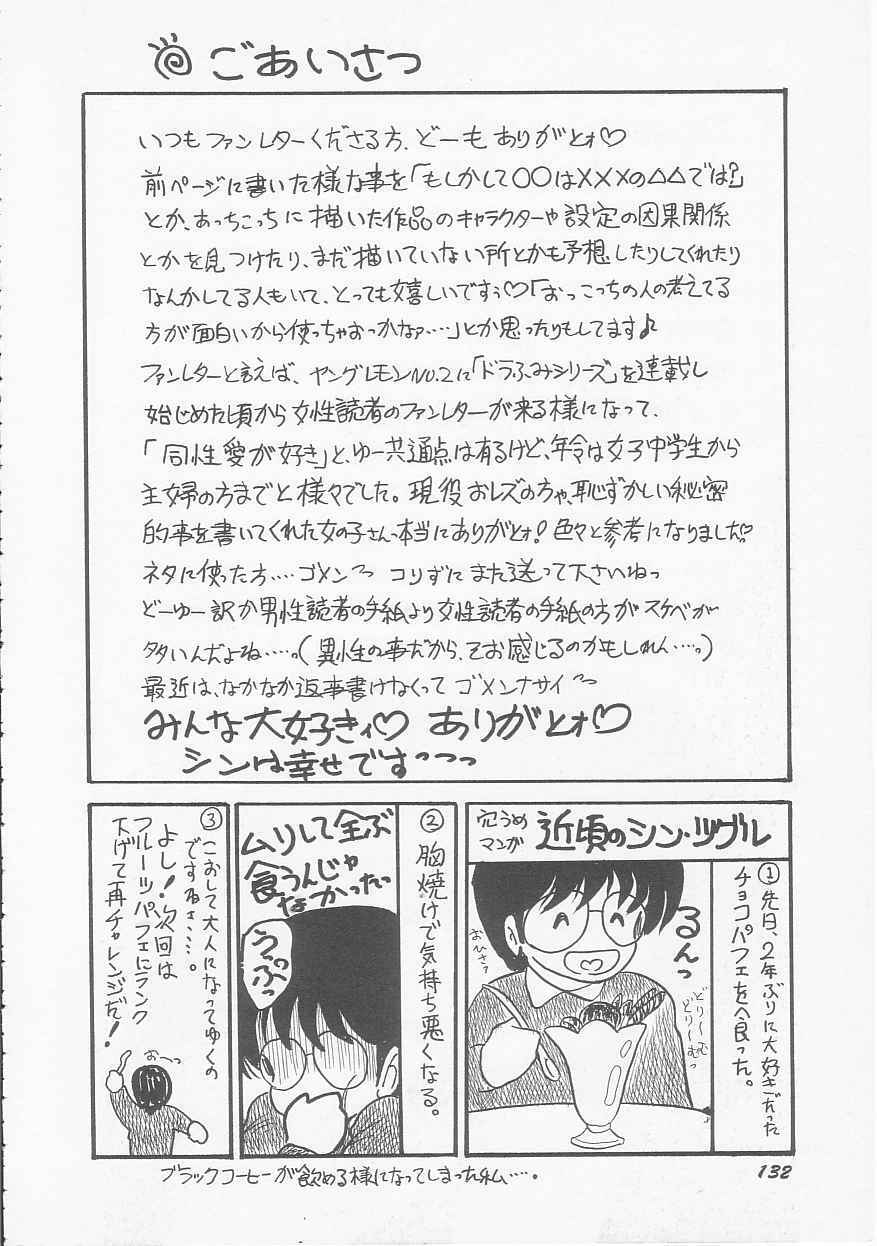 ごあいさつ
いつもファンレターくださる方、どーもありがとォ♡
前ページに書いた様な事を「もしかして〇〇は×××の△△では?」
とか、あっちこっちに描いた作品のキャラクターや設定の因果関係
とかを見つけたり、まだ描いていない所とかも予想したりしてくれたり
なんかしてる人もいて、とっても嬉しいですぅ♡「おっこっちの人の考えてる
方が面白いから使っちゃおっかなァ‥‥」とか思ったりもしてます♪
ファンレターと言えば、ヤングレモンNO.2に「ドラふみシリーズ」を連載し
始じめた頃から女性読者のファンレターが来る様になって、
「同性愛が好き」と、ゆー共通点は有るけど、年令は女子中学生から
主婦の方までと様々でした。現役おレズの方や、恥ずかしい秘密
的事を書いてくれた女の子さんっ本当にありがとォ!色々と参考になりましたっ♡
ネタに使った方‥‥ゴメン〜 コリずにまた送って下さいねっ
どーゆー訳か男性読者の手紙より女性読者の手紙の方がスケベが
多いんだよね‥‥っ(異性の事だから、そお感じるのかもしれん‥‥っ)
最近は、なかなか返事書けなくってゴメンナサイ〜
みんな大好きィ♡ ありがとォ♡
シンは幸せですっっっ
穴うめマンガ 近頃のシン・ツグル
①先日、2年ぶりに大好きだった
チョコパフェをへ食った。
るんっ
おひさァ
どり〜む
どり〜むっ
②胸焼けで気持ち悪くなる。
ムリして全ぶ
食うんじゃ
なかったっ
うっぷっ
③こおして大人になってゆくの
ですねェ‥‥。
よし!次回は
フルーツパフェにランク
下げて再チャレンジだ!
おーっ
ブラックコーヒーが飲める様になってしまった私‥‥。
132